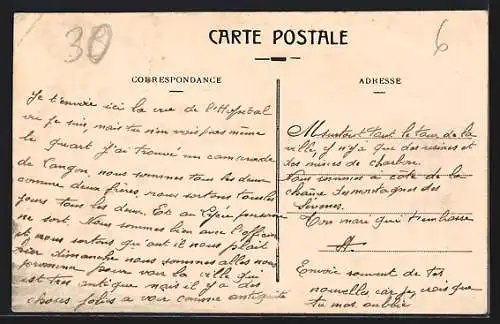 30
6
CARTE POSTALE
CORRESPONDANCE
ADRESSE
Je t'envoie ici la vue de l'Hôpital
ou je suis, mais tu n'en vois pas même
le quart j'ai trouvé un camarade
de Langon, nous sommes tous les deux
comme deux frères, nous sortons tous les
jours tous les deux. Et au Lycée personne
ne sort. Nous sommes bien avec l'officier
et nous sortons qu'ant il nous plait
hier dimanche nous sommes allés nous
promener pour voir la ville qui
est très antique mais il y a des
choses jolies a voir comme antiquité
surtout tout le tour de la
ville, y n'y a que des usines et
des mines de charbon.
Nous sommes à côté de la
chaîne des montagnes des
Ton mari qui t'embrasse
Envoie souvent de tes
nouvelles car je crois que
tu mas oublié